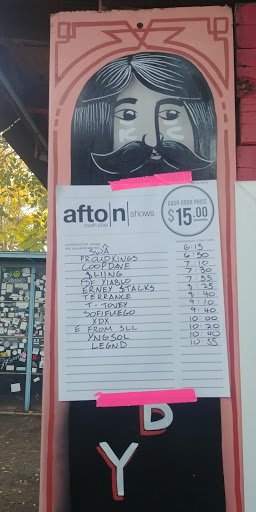 afto|n| shows
push play
CASH DOOR PRICE
$15.00
6:15
PROUDKINGS 6:50
COOPDAVE 7:10
SLIING 7:30
FSF YIABLO 7:55
ERNEY STACKS 8:25
TERRANCE 8:40
T-TONEY 9:10
SOFIFUEGO 9:40
XDX 10:00
E FROM SLC 10:20
YNGSOL 10:40
LEGND 10:55
D
Y